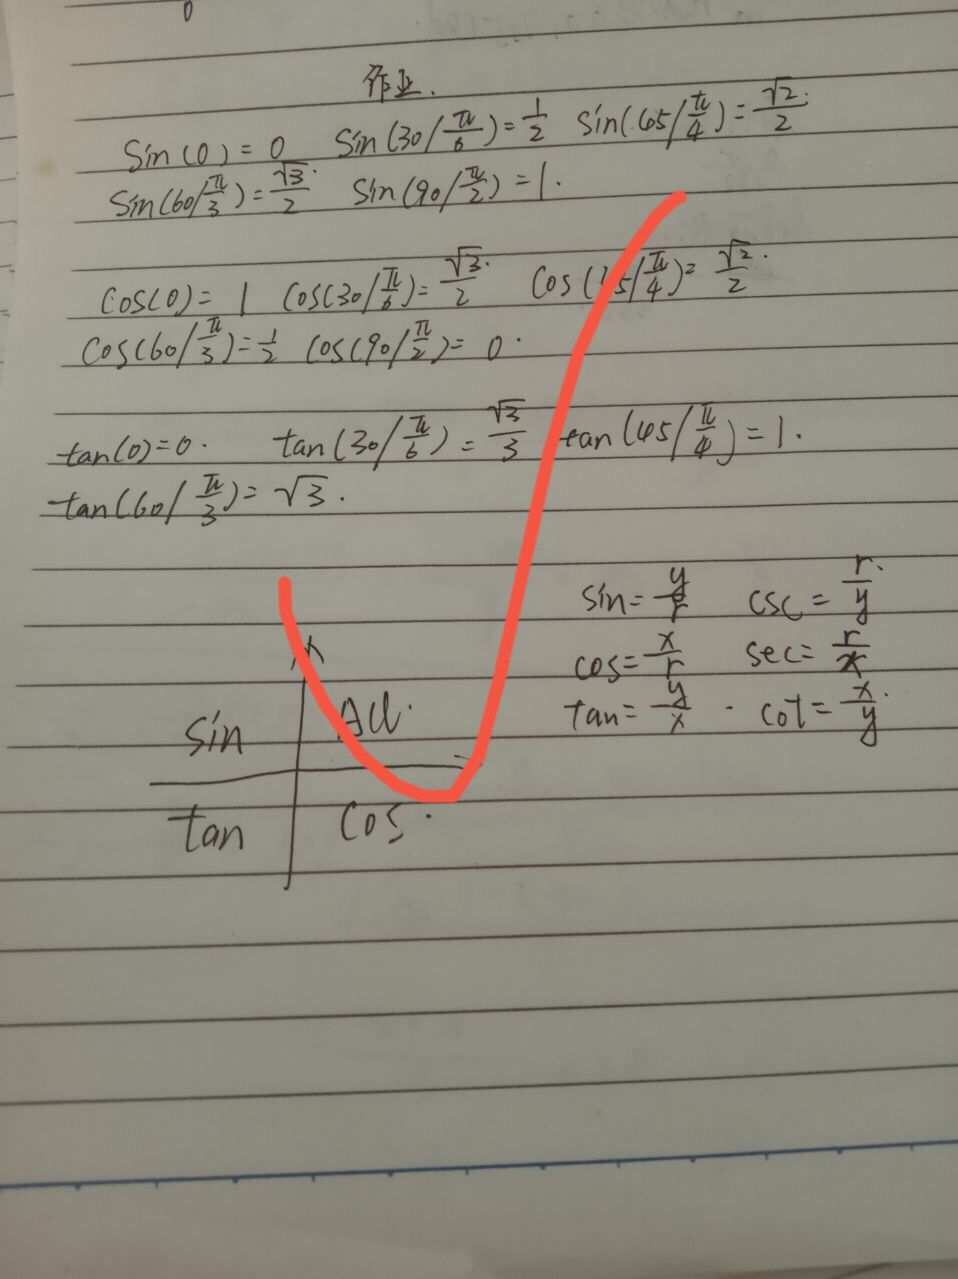 0
作业.
Sin(0)=0 Sin(30/π/6)=1/2 Sin(45/π/4)=√2/2.
Sin(60/π/3)=√3/2. Sin(90/π/2)=1.
Cos(0)=1 Cos(30/π/6)=√3/2. Cos(45/π/4)=√2/2.
Cos(60/π/3)=1/2 Cos(90/π/2)=0.
tan(0)=0. tan(30/π/6)=√3/3 tan(45/π/4)=1.
tan(60/π/3)=√3.
sin=y/r csc=r/y
cos=x/r sec=r/x
tan=y/x · cot=x/y
Sin All.
tan Cos.